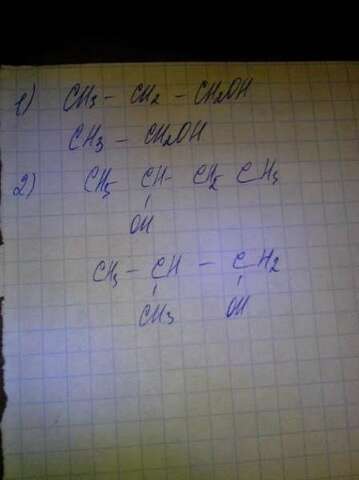 1) CH3 - CH2 - CH2OH
CH3 - CH2OH
2) CH3 CH - CH2 CH3
OH
CH3 - CH - CH2
CH3 OH